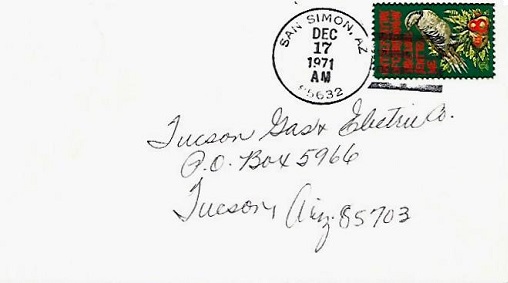 SAN SIMON, AZ
DEC
17
1971
AM
85632
Tucson Gas & Electric Co.
P.O. Box 5966
Tucson, Ariz. 85703